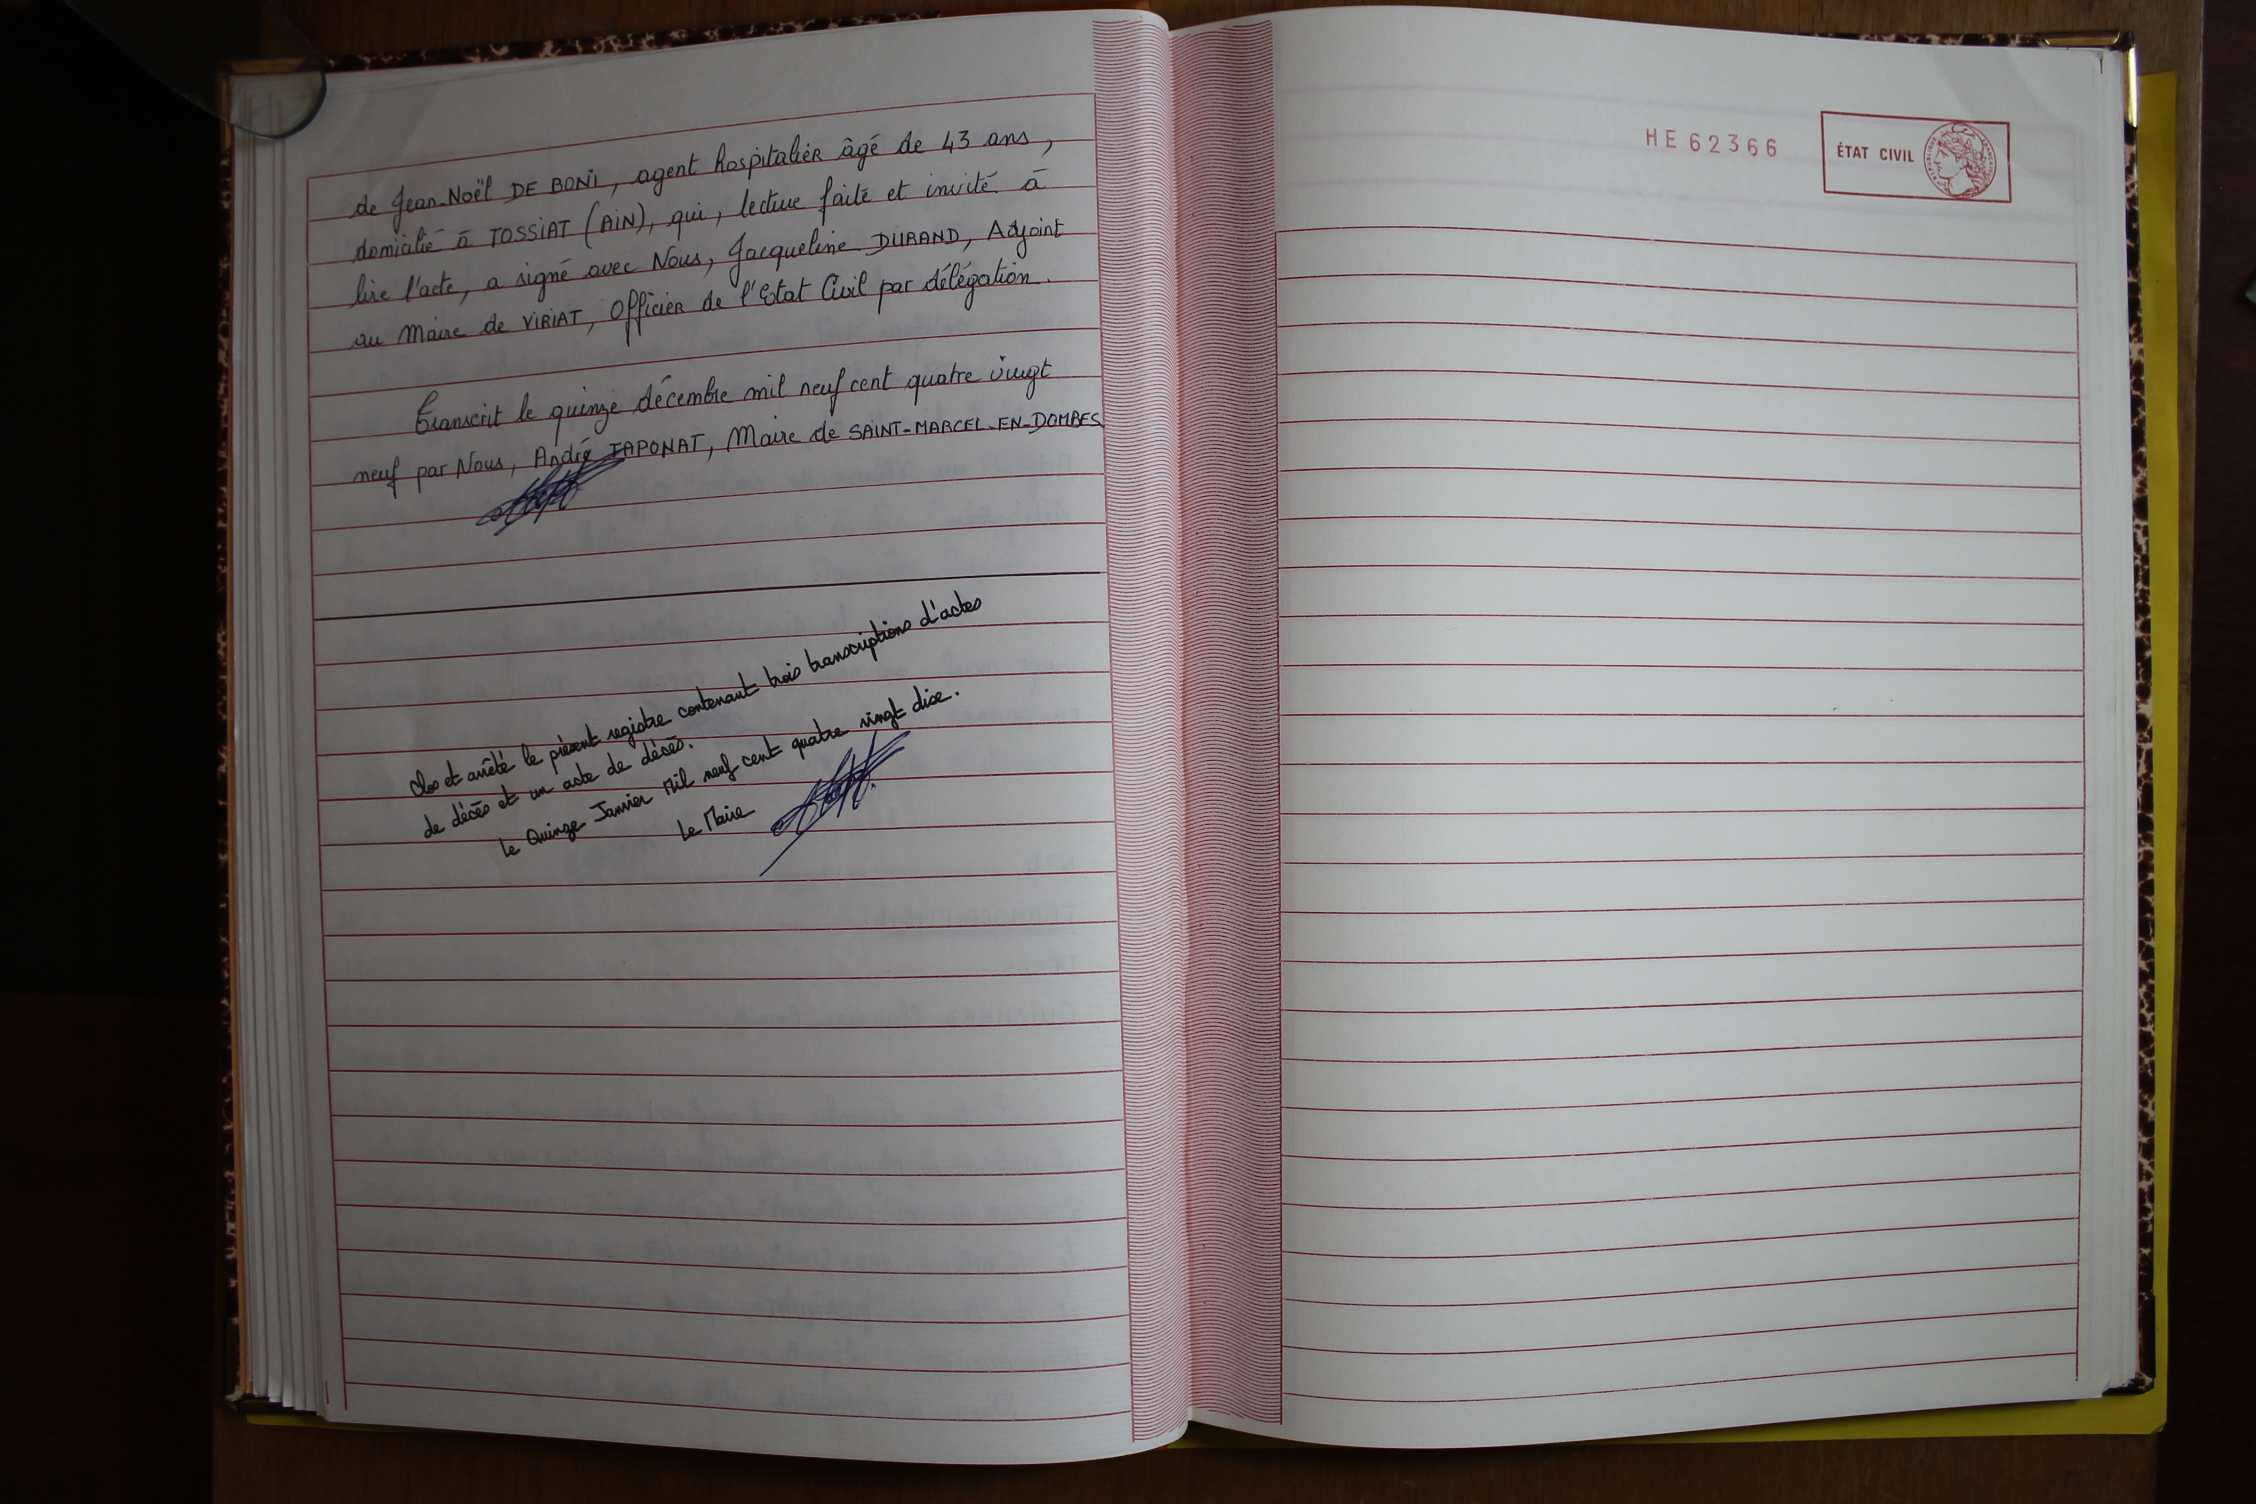 de Jean-Noël DE BONI, agent hospitalier âgé de 43 ans,
domicilié à TOSSIAT (AIN), qui, lecture faite et invité à
lire l'acte, a signé avec Nous, Jacqueline DURAND, Adjoint
au Maire de VIRIAT, Officier de l'Etat Civil par délégation.
Transcrit le quinze décembre mil neuf cent quatre vingt
neuf par Nous, André TAPONAT, Maire de SAINT-MARCEL-EN-DOMBES
Clos et arrêté le présent registre contenant trois transcriptions d'actes
de décès et un acte de décès.
le Quinze Janvier Mil neuf cent quatre vingt dix.
Le Maire
HE 62366
ÉTAT CIVIL